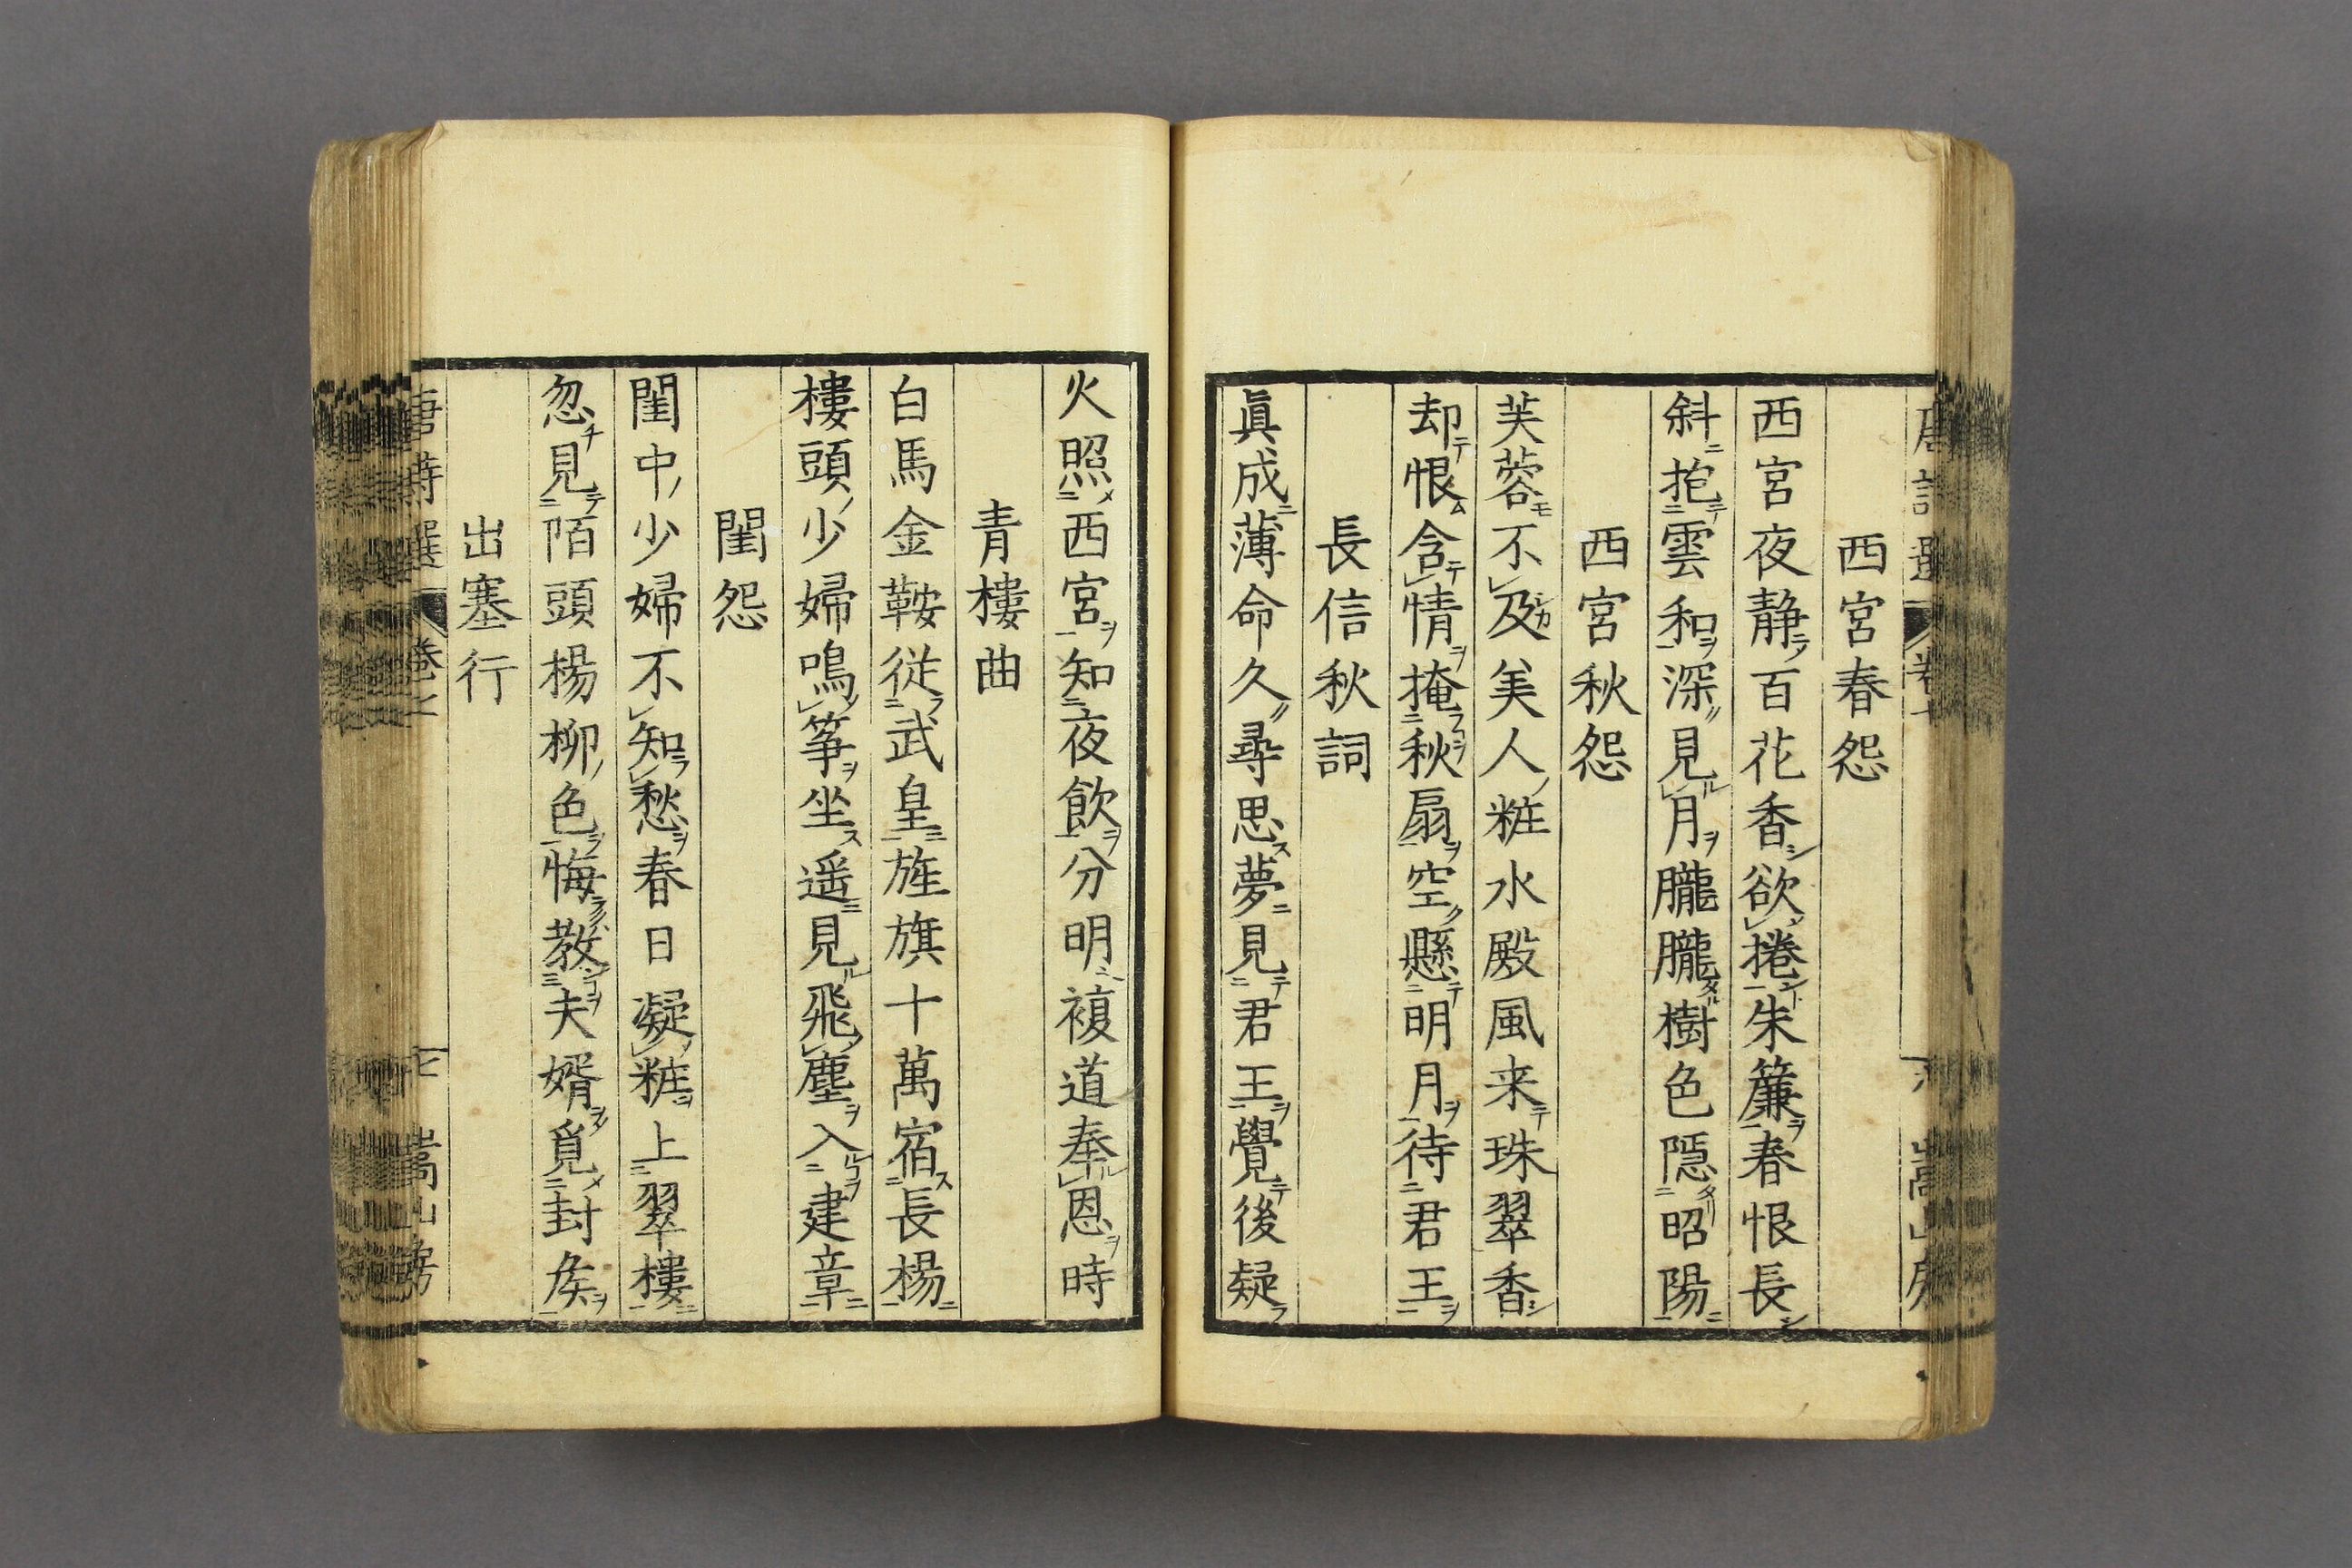 西宮春怨
西宮夜静百花香欲捲朱簾春恨長
斜抱雲和深見月朧朧樹色隠昭陽
西宮秋怨
芙蓉不及美人粧水殿風来珠翠香
却恨含情掩秋扇空懸明月待君王
長信秋詞
眞成薄命久尋思夢見君王覺後疑
火照西宮知夜飲分明複道奉恩時
青樓曲
白馬金鞍従武皇旌旗十萬宿長楊
樓頭少婦鳴筝坐遥見飛塵入建章
閨怨
閨中少婦不知愁春日凝粧上翠樓
忽見陌頭楊柳色悔教夫婿覓封侯
出塞行
唐詩選 巻七 嵩山房